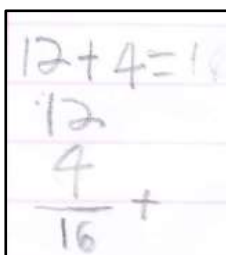 12+4=1
12
4
+
16